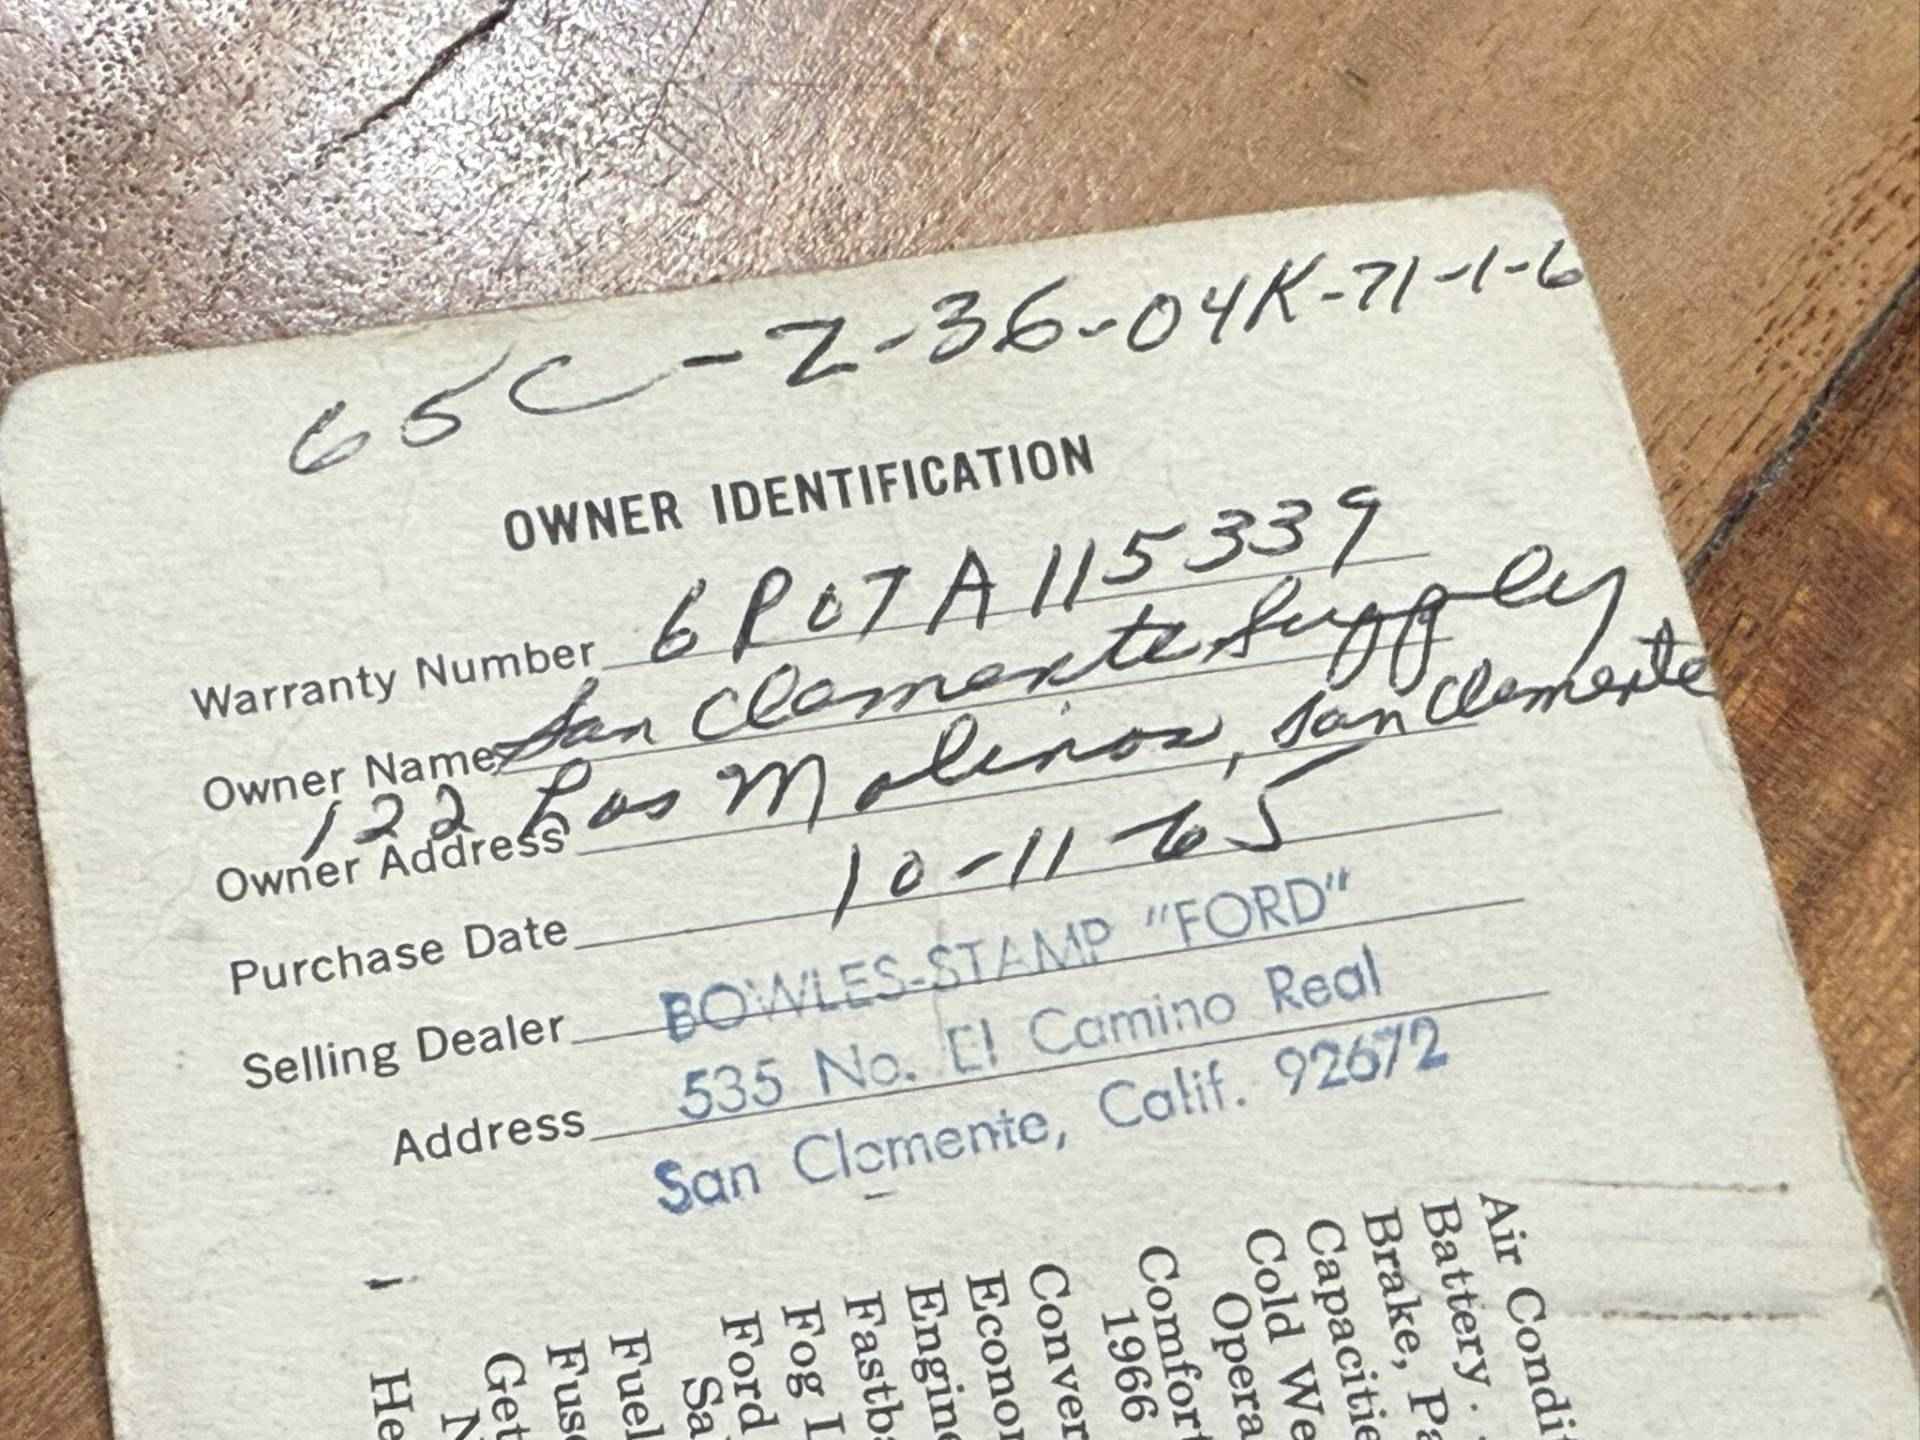 65C-Z-36-04K-71-1-6
OWNER IDENTIFICATION
Warranty Number 6P07A115339
Owner Name San Clemente Supply
Owner Address 122 Los Molinos, San Clemente
Purchase Date 10-11-65
Selling Dealer BOWLES-STAMP "FORD"
Address 535 No. El Camino Real
San Clemente, Calif. 92672
Air Condit
Battery .
Brake, Pa
Capacitie
Cold We
Opera
Comfort
1966
Conver
Econo
Engine
Fastba
Fog L
Ford
Sa
Fuel
Fuse
Get
N
He